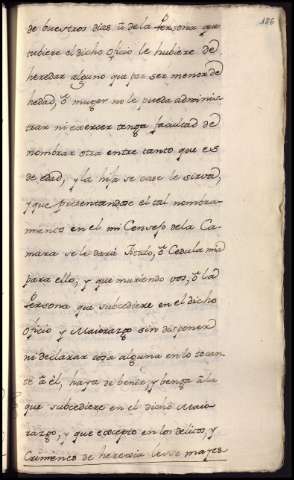 186
de buestros dias ô de la Persona que
tubiere el dicho oficio le hubiere de
heredar alguno que por ser menor de
hedad, ô muger no le pueda adminis
trar ni exercer tenga facultad de
nombrar otra entre tanto que es
de edad, y la hija se case le sirva,
y que presentandose el tal nombra-
miento en el mi Consejo de la Ca-
mara se le dará titulo, ô Cedula mia
para ello, y que muriendo vos, ô la
Persona que subcediere en el dicho
oficio y Maiorazgo sin disponer
ni declarar cosa alguna en lo tocan
te â él, haya de benir, y benga â la
que subcediere en el dicho Maio
razgo, y que excepto en los delitos, y
Crimenes de heregia lesse majes